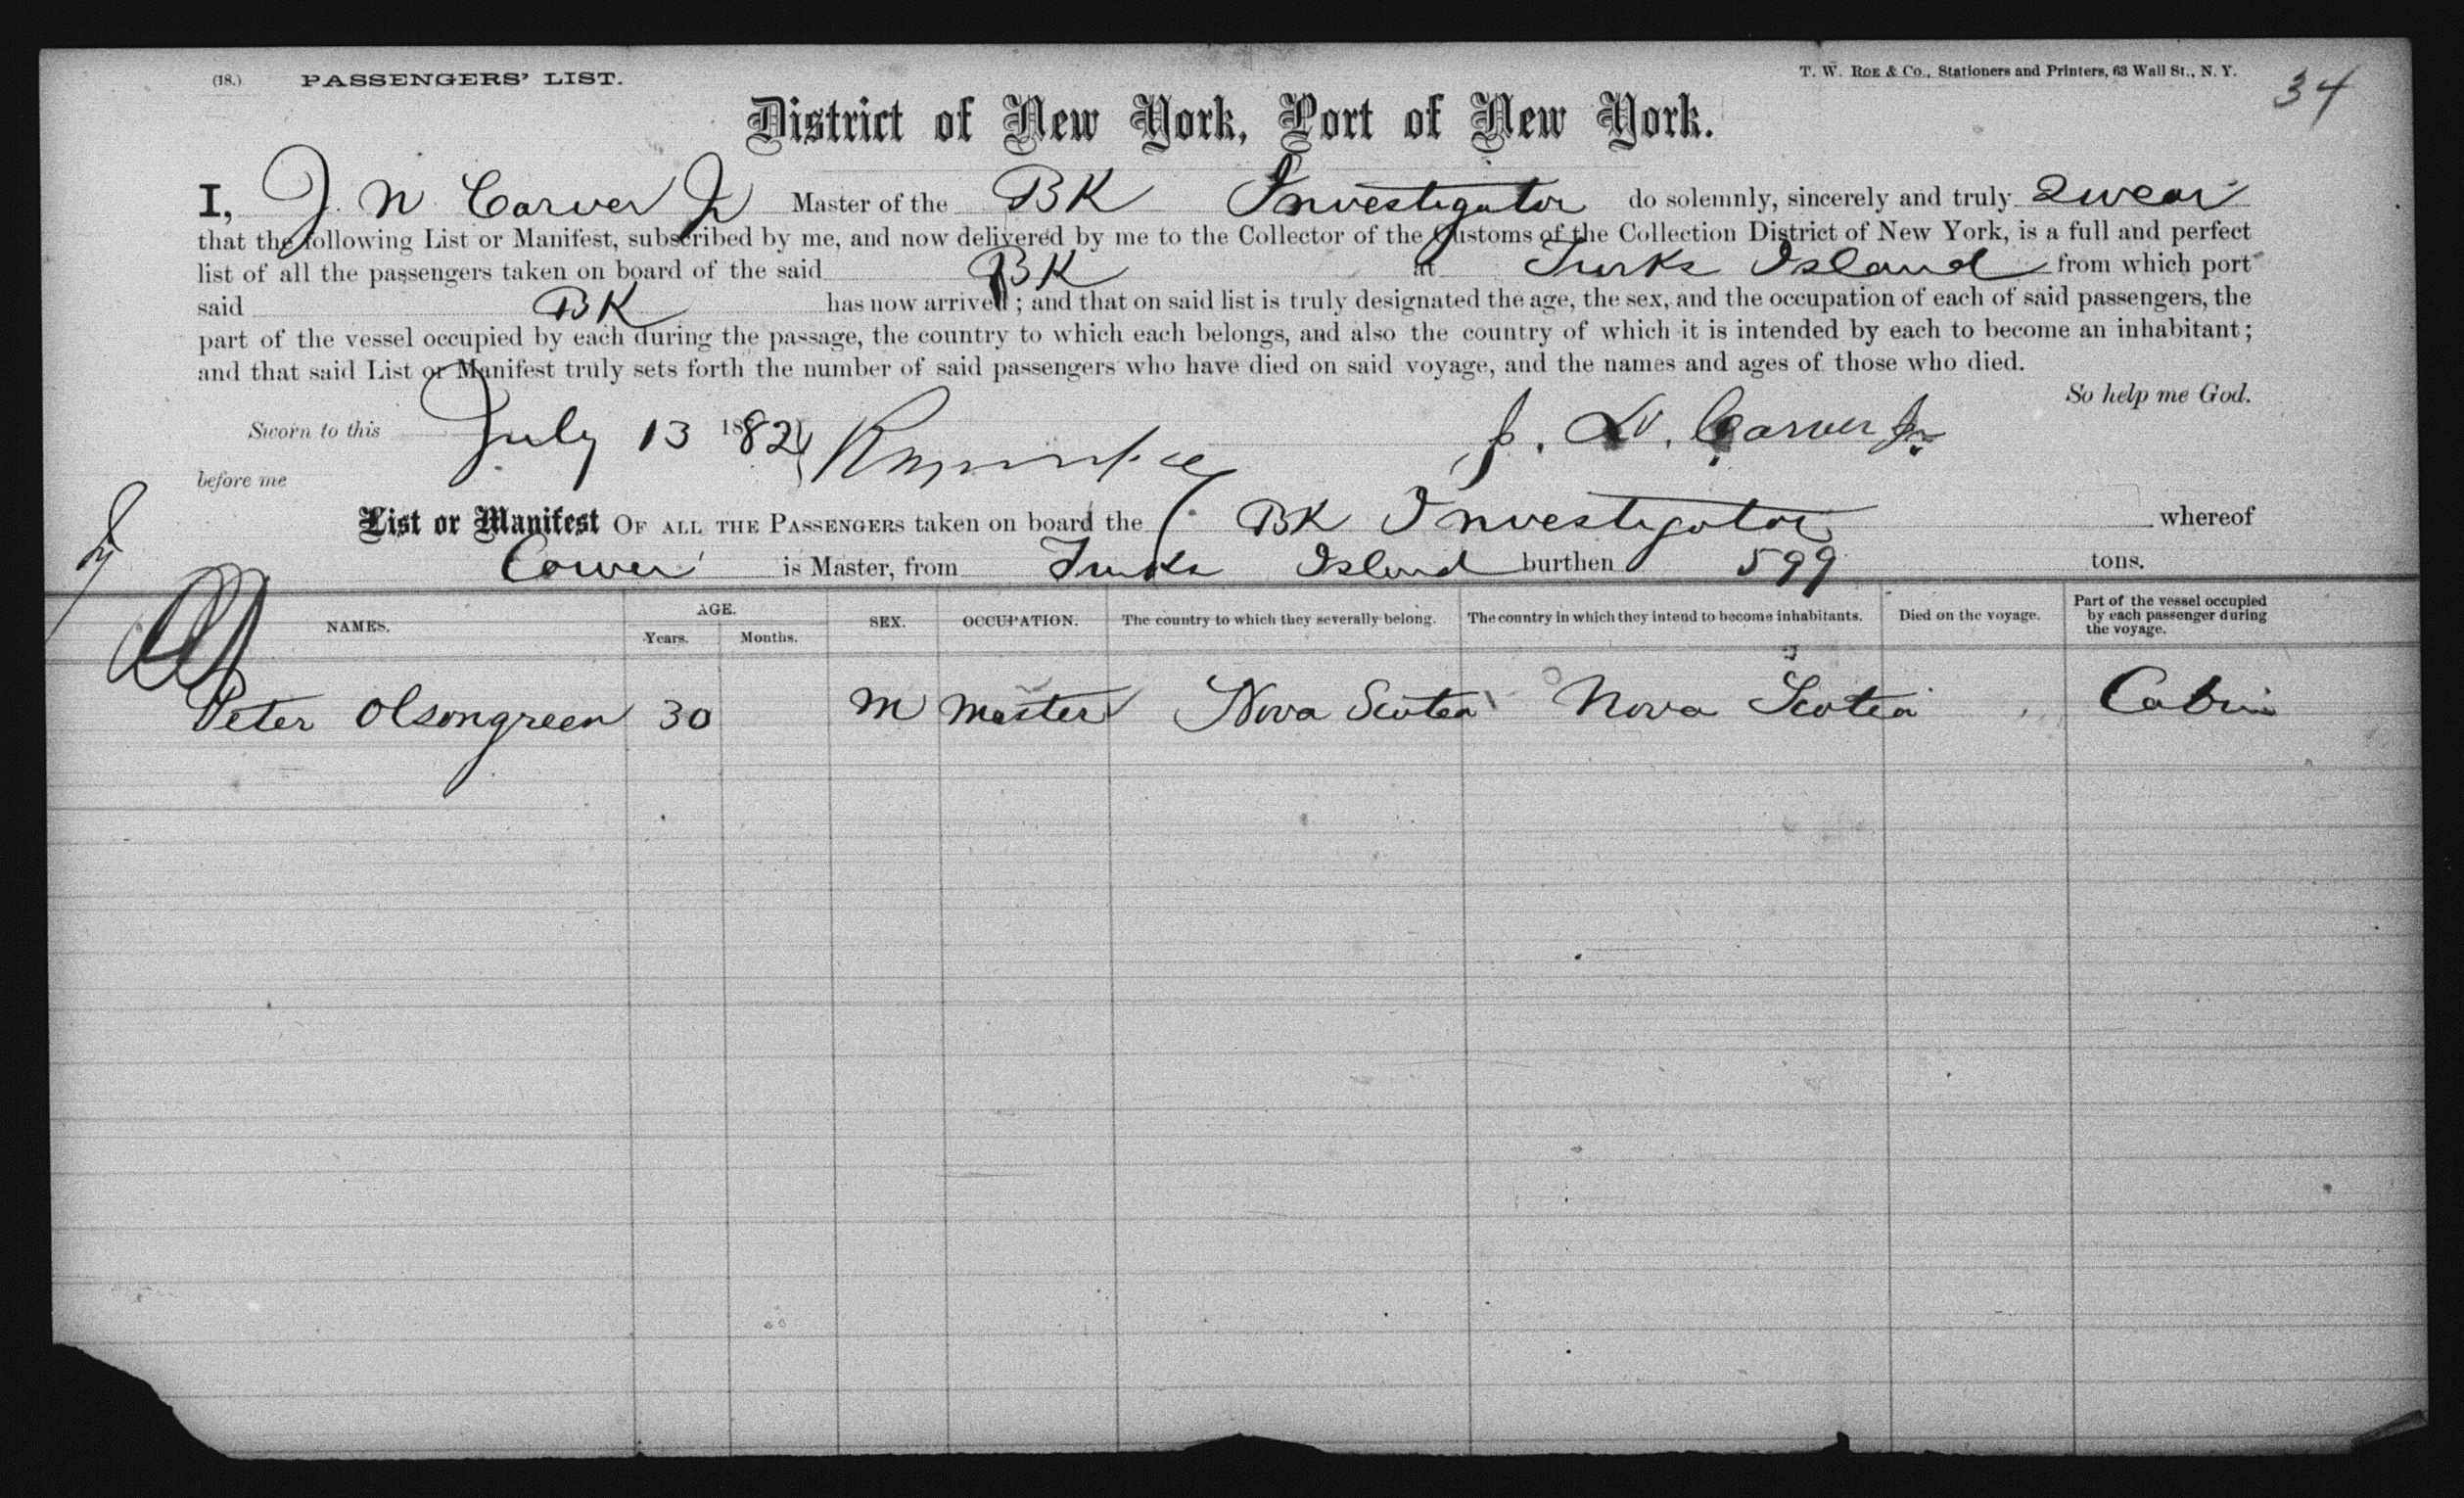 (18.) PASSENGERS' LIST.
T. W. ROE & CO., Stationers and Printers, 63 Wall St., N. Y.
34
District of New York, Port of New York.
I, J. N Carver Jr Master of the BK Investigator do solemnly, sincerely and truly Swear
that the following List or Manifest, subscribed by me, and now delivered by me to the Collector of the Customs of the Collection District of New York, is a full and perfect
list of all the passengers taken on board of the said BK at Turks Island from which port
said BK has now arrived; and that on said list is truly designated the age, the sex, and the occupation of each of said passengers, the
part of the vessel occupied by each during the passage, the country to which each belongs, and also the country of which it is intended by each to become an inhabitant;
and that said List or Manifest truly sets forth the number of said passengers who have died on said voyage, and the names and ages of those who died.
So help me God.
Sworn to this July 13 1882 J. W. Carver Jr.
before me
List or Manifest OF ALL THE PASSENGERS taken on board the BK Investigator whereof
Carver is Master, from Turks Island burthen 599 tons.
NAMES. AGE. Years. Months. SEX. OCCUPATION. The country to which they severally belong. The country in which they intend to become inhabitants. Died on the voyage. Part of the vessel occupied by each passenger during the voyage.
Peter Olsongreen 30 M Master Nova Scotea Nova Scotea Cabin